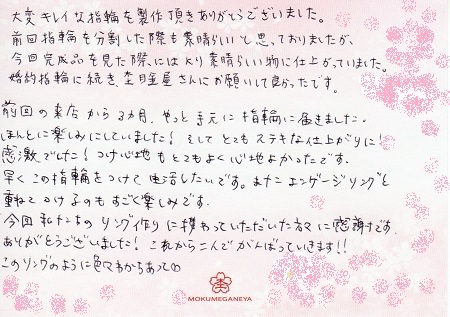 大変キレイな指輪を製作頂きありがとうございました。
前回指輪を分割した際も素晴らしいと思っておりましたが、
今回完成品を見た際にはより素晴らしい物に仕上がっていました。
婚約指輪に続き、杢目金屋さんにお願いして良かったです。
前回の来店から3カ月、やっと手元に指輪に届きました。
ほんとに楽しみにしていました!そしてとてもステキな仕上がりに!
感激でした!つけ心地もとてもよく心地よかったです。
早くこの指輪をつけて生活したいです。またエンゲージリングと
重ねてつけるのもすごく楽しみです。
今回私たちのリング作りに携わっていただいた方々に感謝です。
ありがとうございました!これから二人でがんばっていきます!!
このリングのように色でわかちあって
MOKUMEGANEYA